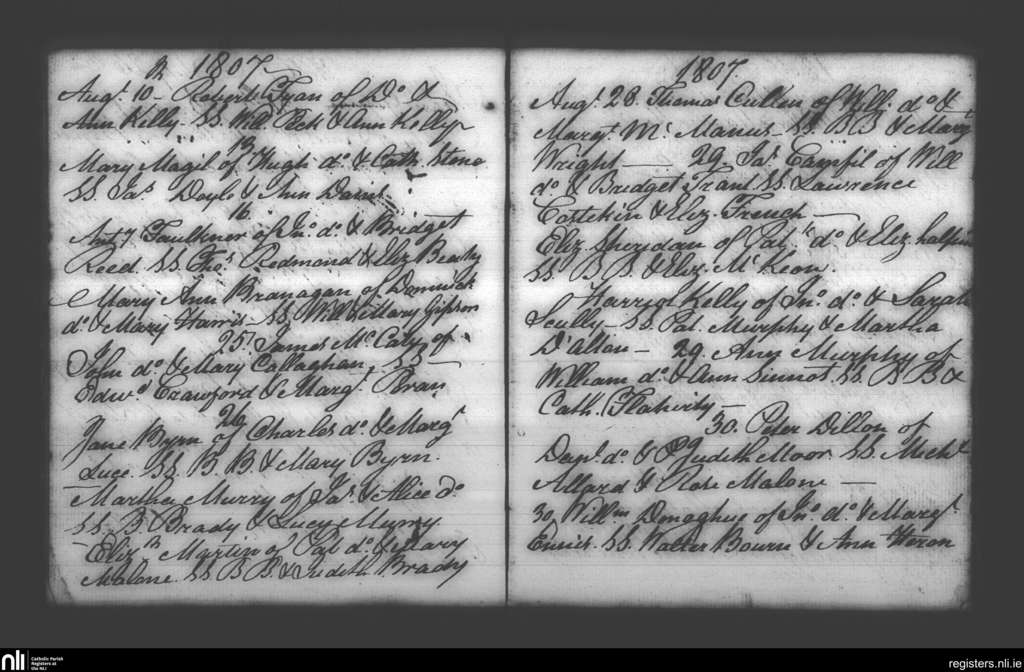 1807
Augt. 10 - Robert Tyan of Do. &
Ann Kelly - SS. Willm. Peck & Ann Kelly
13
Mary Magil of Hugh do. & Cath. Stone
SS. Jas. Doyle & Ann Davis
16
Anty. Faulkner of Jno. do. & Bridget
Reed. SS. Thos. Redmond & Eliz Beahy
Mary Ann Branagan of Dominick
do. & Mary Harris - SS. Will & Mary Gipson
25 James McCaly of
John do. & Mary Callaghan SS -
Edwd. Crawford & Margt. Bran
26
Jane Byrn of Charles do. & Margt.
Luce. SS. B. B. & Mary Byrn.
Martha Murry of Jas. & Alice do.
SS B Brady & Lucy Murry
Elizh. Martin of Pat do. & Mary
Malone. SS B B. & Judith Brady
1807
Augt. 28. Thomas Cullen of Will. do. &
Margt. Mc. Manus - SS. B B & Mary
Wright - 29. Jas. Campil of Will
do. & Bridget Trant SS. Lawrence
Costekin & Eliz. French -
Eliz Sheridan of Patk. do. & Eliz halpin
SS. B B. & Eliz. McKeon.
Harriot Kelly of Jno. do. & Sarah
Scully - SS. Pat. Murphy & Martha
D'Alton - 29. Ann Murphy of
William do. & Ann Sinnot. SS. B B &
Cath. Flahirty -
30. Peter Dillon of
Danl. do. & Judith Moor. SS Michl.
Allard & Rose Malone -
30 Willm. Donoghue of Jno. do. & Margt.
Ennis. SS. Walter Bourn & Ann Heron
nli
Catholic Parish
Registers at
the NLI
registers.nli.ie